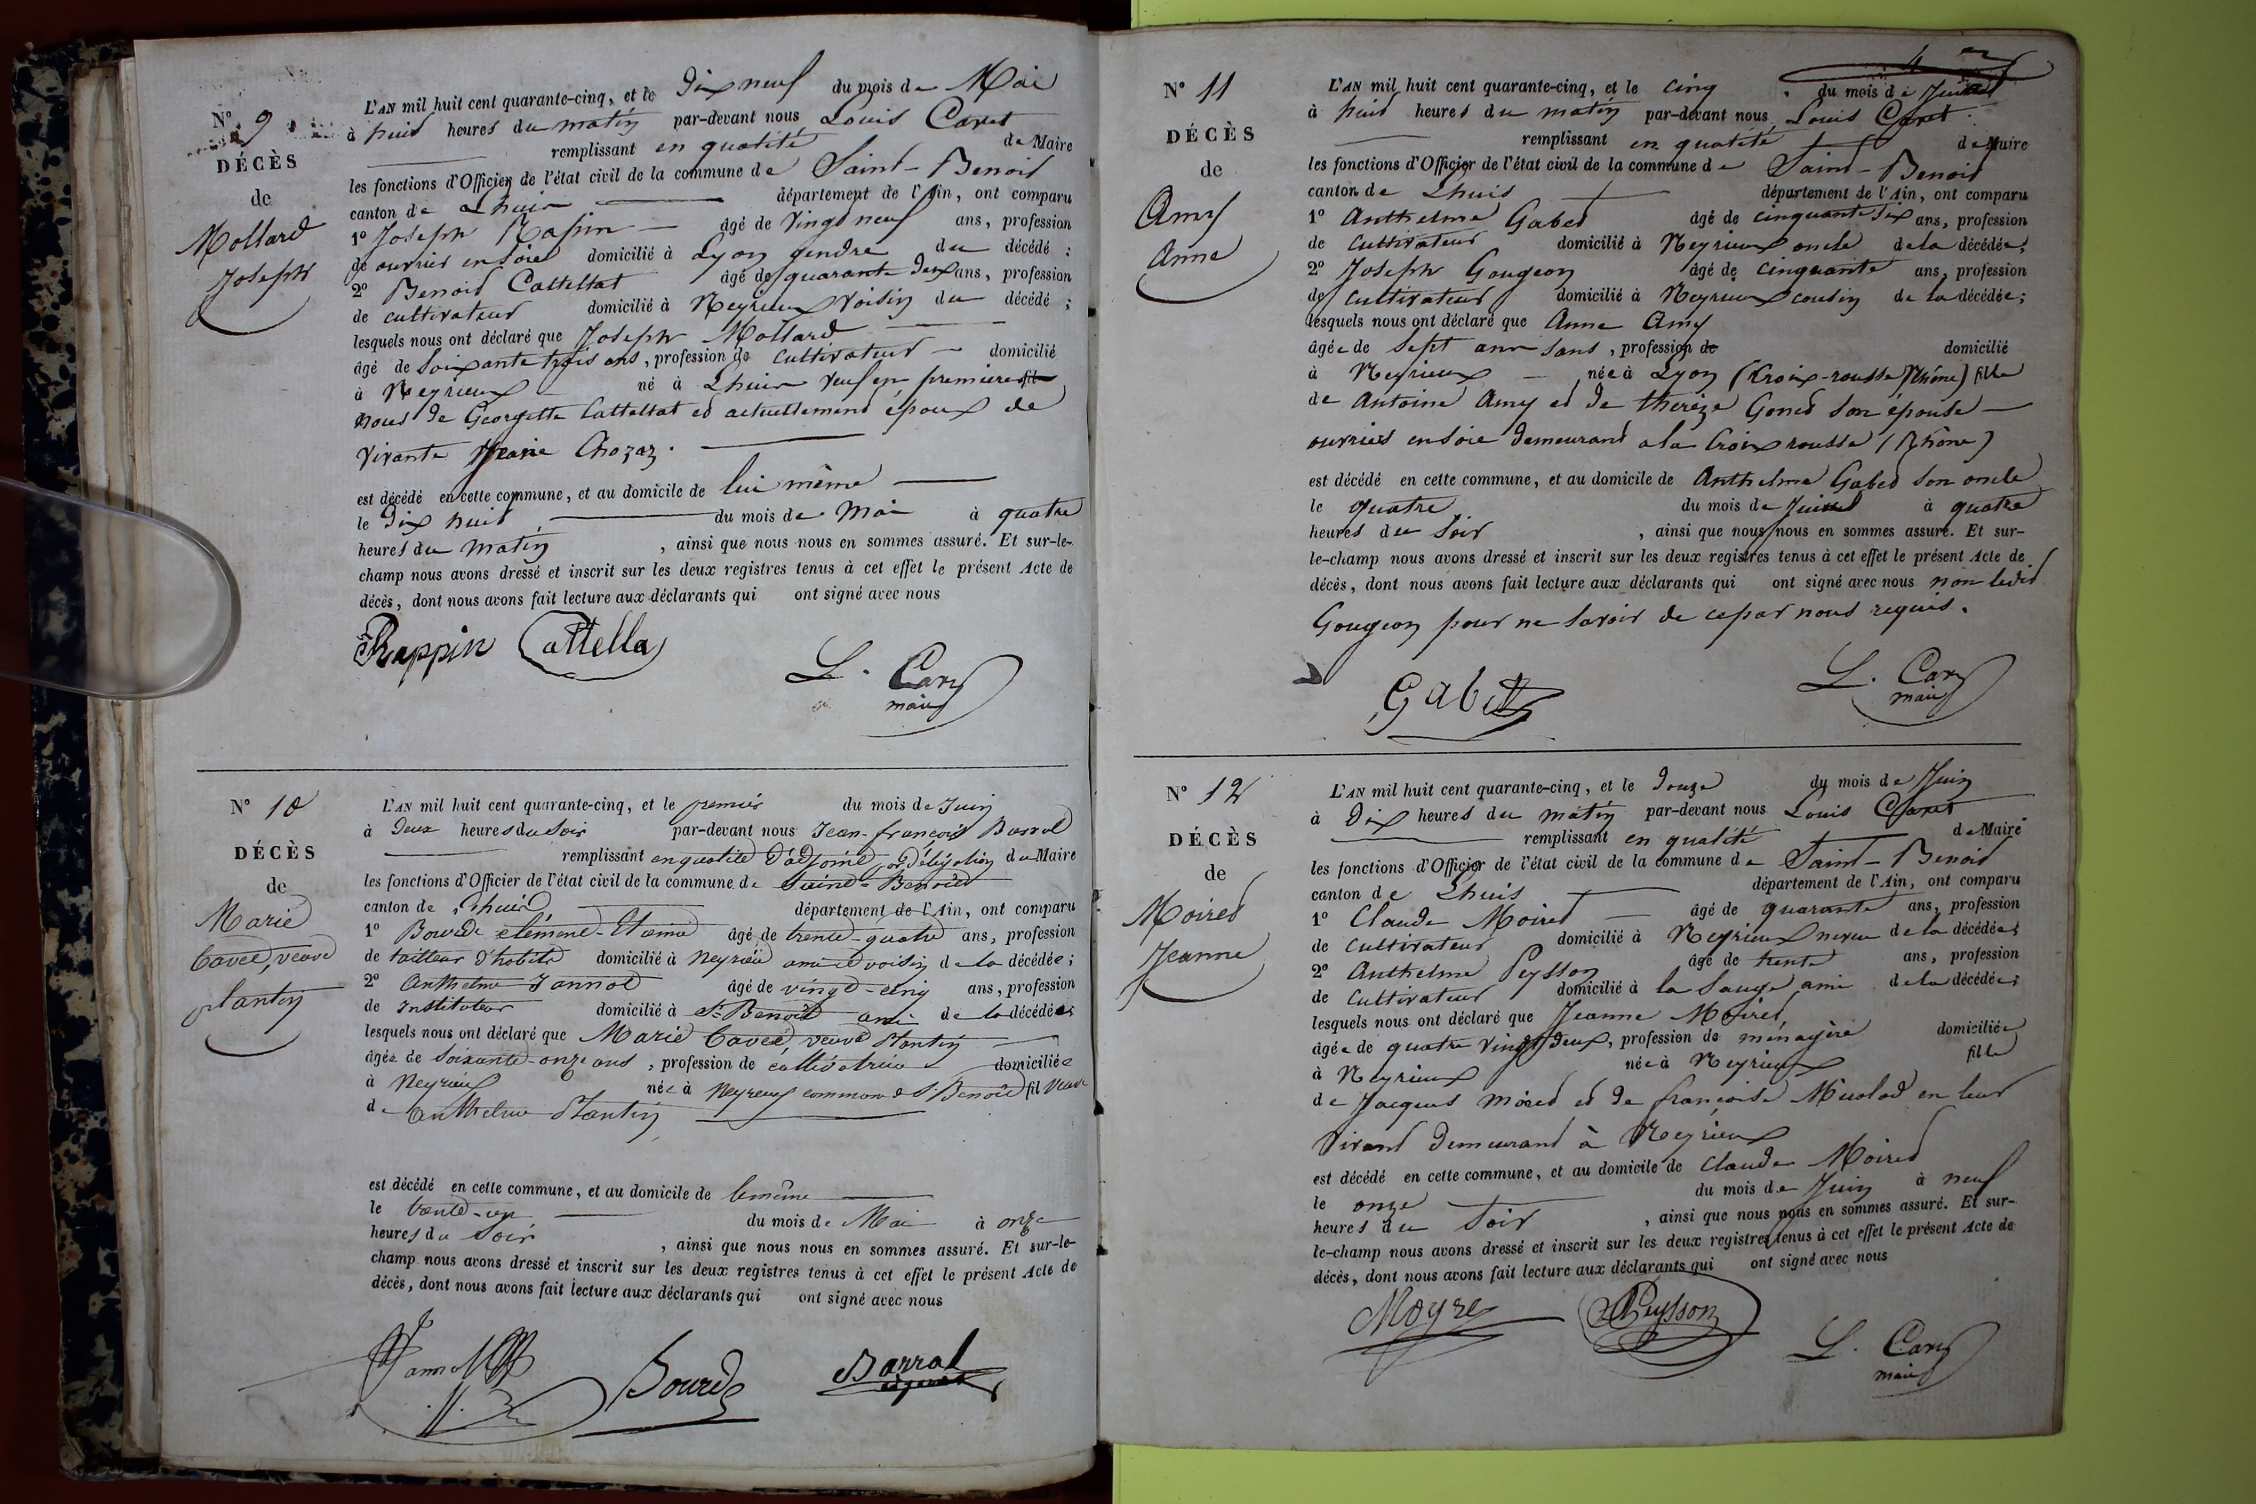 N° 9
DÉCÈS
de
Mollard
Joseph
L'AN mil huit cent quarante-cinq, et le Dix neuf du mois de Mai
à huit heures du matin par-devant nous Louis Caret
remplissant en qualité de Maire
les fonctions d'Officier de l'état civil de la commune de Saint-Benoit
canton de Lhuis département de l'Ain, ont comparu
1° Joseph Rapin âgé de vingt neuf ans, profession
de ouvrier en soie domicilié à Lyon gendre du décédé ;
2° Benoit Cattellat âgé de quarante deux ans, profession
de cultivateur domicilié à Neyrieux voisin du décédé ;
lesquels nous ont déclaré que Joseph Mollard
âgé de soixante trois ans, profession de cultivateur domicilié
à Neyrieux né à Lhuis veuf en premiere fil
nous de Georgette Cattellat et actuellement époux de
vivante Marie Chozaz.
est décédé en cette commune, et au domicile de lui même
le Dix huit du mois de Mai à quatre
heures du matin, ainsi que nous nous en sommes assuré. Et sur-le-
champ nous avons dressé et inscrit sur les deux registres tenus à cet effet le présent Acte de
décès, dont nous avons fait lecture aux déclarants qui ont signé avec nous
Rappin Cattella
L. Caret
maire
N° 10
DÉCÈS
de
Marie
Cavet, veuve
plantin
L'AN mil huit cent quarante-cinq, et le premier du mois de Juin
à Deux heures du soir par-devant nous Jean-françois Barral
remplissant en qualité d'adjoint par Délégation du Maire
les fonctions d'Officier de l'état civil de la commune de Saint-Benoît
canton de Lhuis département de l'Ain, ont comparu
1° Bourde clément-Etienne âgé de trente-quatre ans, profession
de tailleur d'habits domicilié à Neyrieu ami et voisin de la décédée ;
2° Anthelme Jannot âgé de vingt-cinq ans, profession
de Instituteur domicilié à St Benoît ami de la décédée ;
lesquels nous ont déclaré que Marie Cavet, veuve Plantin
âgée de soixante-onze ans, profession de cultivatrice domiciliée
à Neyrieux née à Neyrieux commune de St Benoît fil veuve
de Anthelme Plantin
est décédé en cette commune, et au domicile de lemême
le trente-un du mois de Mai à onze
heures du soir, ainsi que nous nous en sommes assuré. Et sur-le-
champ nous avons dressé et inscrit sur les deux registres tenus à cet effet le présent Acte de
décès, dont nous avons fait lecture aux déclarants qui ont signé avec nous
Jannot Bourde Barral
N° 11
DÉCÈS
de
Amy
Anne
L'AN mil huit cent quarante-cinq, et le cinq du mois de Juin
à huit heures du matin par-devant nous Louis Caret
remplissant en qualité de Maire
les fonctions d'Officier de l'état civil de la commune de Saint-Benoit
canton de Lhuis département de l'Ain, ont comparu
1° Anthelme Gabet âgé de cinquante six ans, profession
de cultivateur domicilié à Neyrieux oncle de la décédée ;
2° Joseph Gougeon âgé de cinquante ans, profession
de cultivateur domicilié à Neyrieux cousin de la décédée ;
lesquels nous ont déclaré que Anne Amy
âgée de sept ans sans, profession de domicilié
à Neyrieux née à Lyon (Croix-rousse Rhône) fille
de Antoine Amy et de thérèze Gonet son épouse
ouvriers en soie demeurant a la Croix rousse (Rhône)
est décédé en cette commune, et au domicile de Anthelme Gabet son oncle
le quatre du mois de Juin à quatre
heures du soir, ainsi que nous nous en sommes assuré. Et sur-
le-champ nous avons dressé et inscrit sur les deux registres tenus à cet effet le présent Acte de
décès, dont nous avons fait lecture aux déclarants qui ont signé avec nous non ledit
Gougeon pour ne savoir de ce par nous requis.
Gabet
L. Caret
maire
N° 12
DÉCÈS
de
Moiret
Jeanne
L'AN mil huit cent quarante-cinq, et le Douze du mois de Juin
à Dix heures du matin par-devant nous Louis Caret
remplissant en qualité de Maire
les fonctions d'Officier de l'état civil de la commune de Saint-Benoit
canton de Lhuis département de l'Ain, ont comparu
1° Claude Moiret âgé de quarante ans, profession
de cultivateur domicilié à Neyrieux neveu de la décédée ;
2° Anthelme Peysson âgé de trente ans, profession
de cultivateur domicilié à la Sauge ami de la décédée ;
lesquels nous ont déclaré que Jeanne Moiret
âgée de quatre vingt deux, profession de ménagère domiciliée
à Neyrieux née à Neyrieux fille
de Jacques Moiret et de françoise Micolod en leur
vivant demeurant à Neyrieux
est décédé en cette commune, et au domicile de Claude Moiret
le onze du mois de Juin à neuf
heures du soir, ainsi que nous nous en sommes assuré. Et sur-
le-champ nous avons dressé et inscrit sur les deux registres tenus à cet effet le présent Acte de
décès, dont nous avons fait lecture aux déclarants qui ont signé avec nous
Moyre Peysson
L. Caret
maire